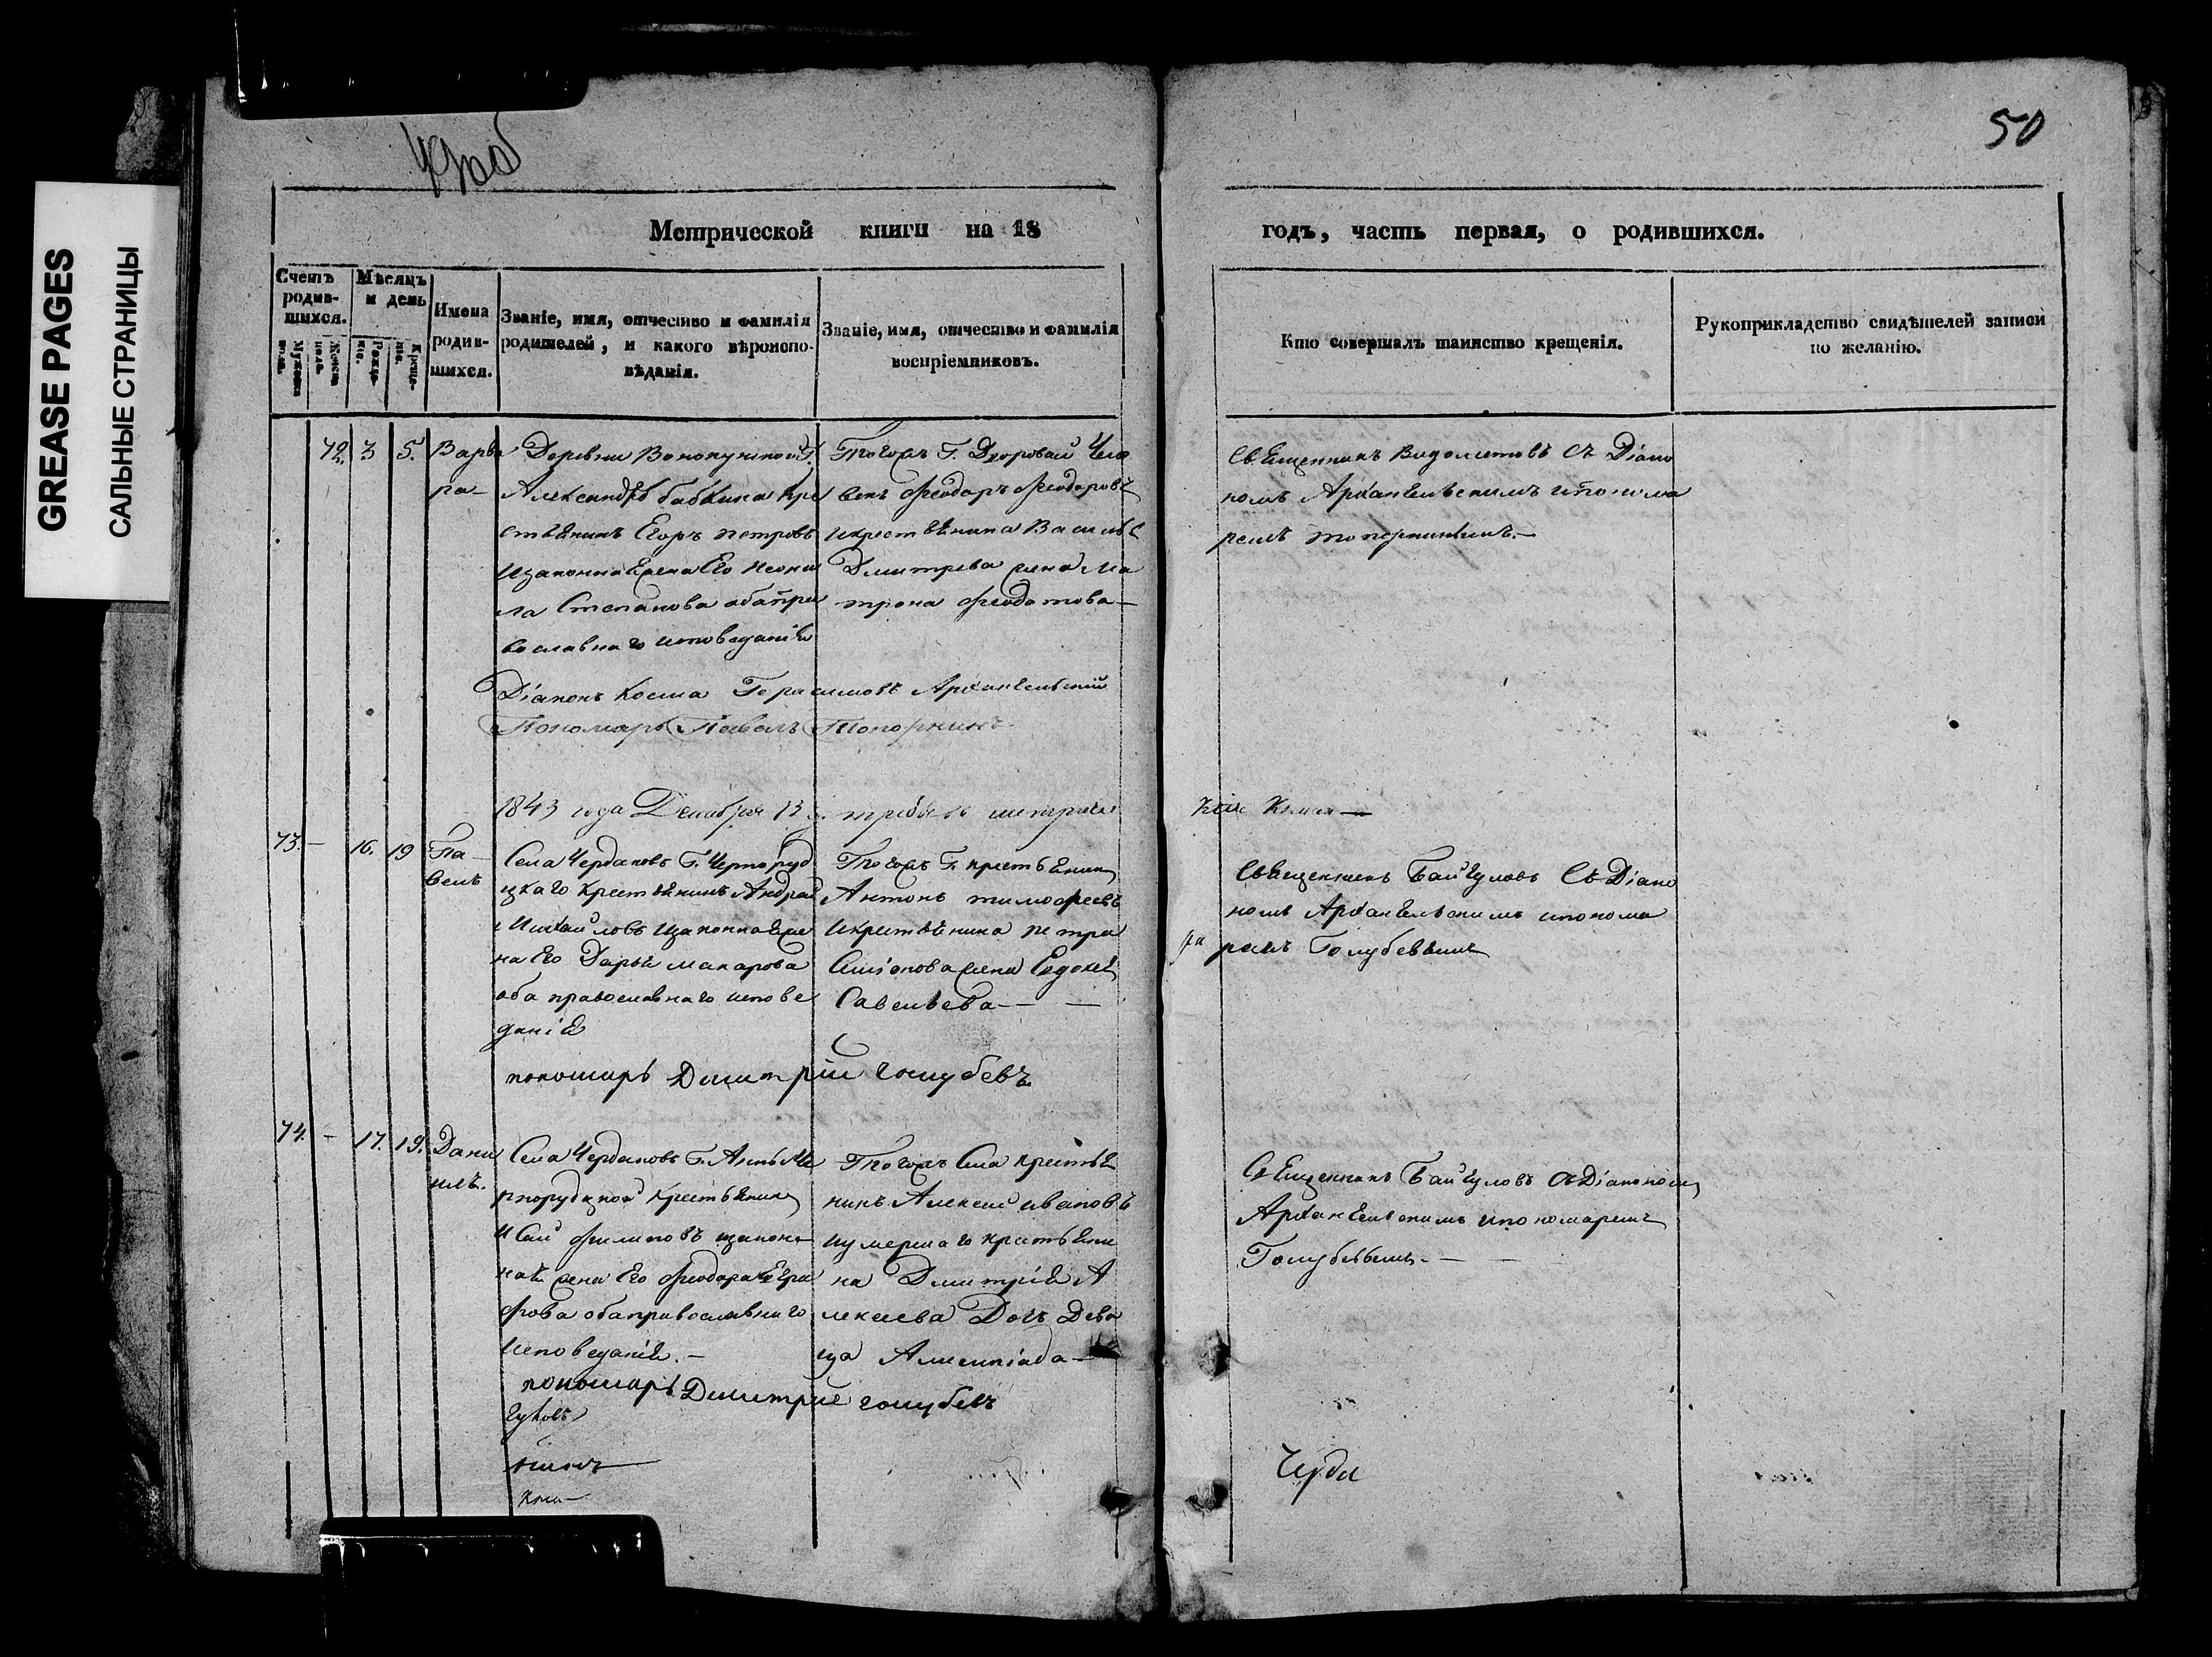 GREASE PAGES
САЛЬНЫЕ СТРАНИЦЫ
50
Метрической книги на 18
годъ, часть первая, о родившихся.
Счетъ родив-шихся.
Мужеска пола.
Женска пола.
Мѣсяцъ и день
Рожде-нія.
Креще-нія.
Имена родив-шихся.
Званіе, имя, отчество и фамилія родителей, и какого вѣроиспо-вѣданія.
Званіе, имя, отчество и фамилія воспріемниковъ.
Кто совершалъ таинство крещенія.
Рукоприкладство свидѣтелей записи по желанію.
72. 3 5. Варва
ра
Деревни
Александра Бабкина кре
стьянинъ Егоръ Петровъ
и законная жена его Неони
ла Степанова оба пра
вославнаго исповеданія
Тогожъ Г. Дворовой Чело
векъ Феодоръ Феодоровъ
и крестьянина Василья
Дмитрева жена Ма
трона Феодотова
Священникъ съ Діако
номъ Архангельскимъ и понома
ремъ Топорнинымъ.
Діаконъ Косма Герасимовъ Архангельскій
Пономарь Павелъ Топорнинъ
1843 года Декабря 13
73. 16. 19 Па
велъ
Села Чердаковъ Г. Черноруд
цкаго Крестьянинъ Андрей
Михайловъ и законная же
на его Дарья Макарова
оба православнаго испове
данія
Тогожъ Г. крестьянинъ
Антонъ Тимофеевъ
и крестьянина Петра
Симіонова жена Евдокія
Савельева
Священникъ съ Діако
номъ Архангельскимъ и понома
ремъ Голубевымъ
пономарь Димитрій Голубевъ
74. 17. 19. Дани
илъ.
Села Чердаковъ Г. Анны Че
рнорудцкой Крестьянинъ
Исай Филиповъ и законн
ная жена его Феодора Егра
фова оба православнаго
исповеданія.
Тогожъ Села крестья
нинъ Алексей Ивановъ
и умершаго крестьяни
на Димитрія А
лексеева Дочь Деви
ца Алимпіада
Священникъ съ Діакономъ
Архангельскимъ и пономаремъ
Голубевымъ.
пономарь Димитрие Голубевъ